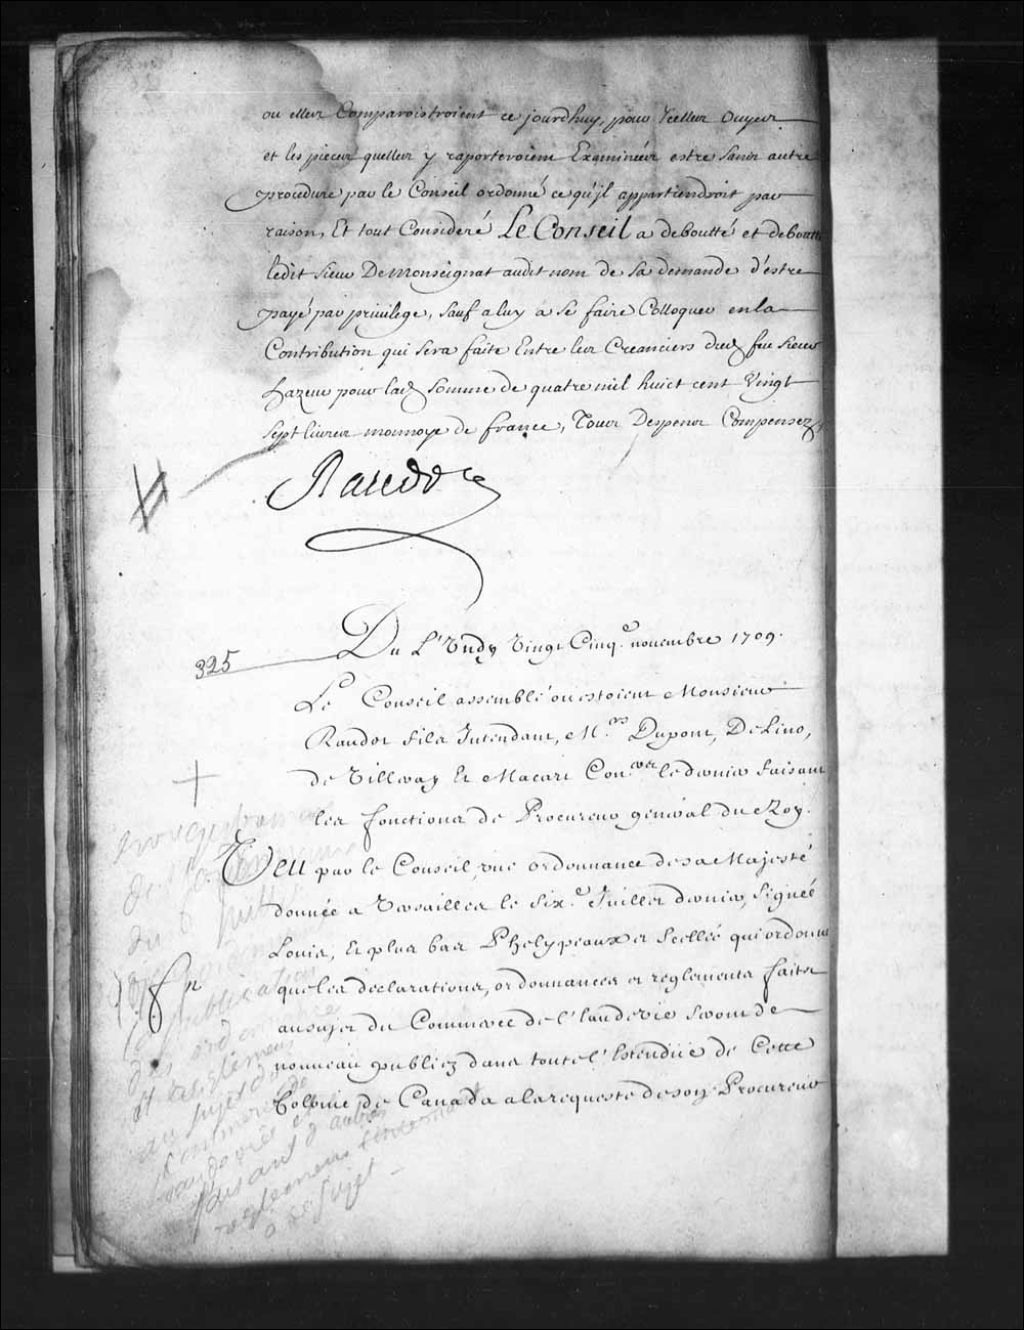 ou elles Comparoistroient ce jourdhuy, pour Icelles Ouyes
et les pieces quelles y raporteroient Examinées estre sans autre
procedure par le Conseil ordonné ce qu'jl appartiendroit par
raison, Et tout Consideré Le Conseil a deboutté et deboutte
ledit sieur De Monseignat audit nom de sa demande d'estre
payé par privilege, sauf a luy a se faire Colloquer en la
Contribution qui sera faite Entre les Creanciers dud feu sieur
hazeur pour lad somme de quatre mil huict cent Vingt
sept livres monnoye de france, Tous Despens Compensez
Raudot
325
Du L'Undy Vingt Cinq.e novembre 1709.
Le Conseil assemblé ou estoient Monsieur
Raudot fils Intendant, M.rs Dupont, De Lino,
de Villeray Et Macart Con.ers le dernier faisant
les fonctions de Procureur general du Roy.
Veu par le Conseil, une ordonnance de sa Majesté
donnée a Versailles le six.e Juillet dernier, signée
Louis, Et plus bas Phelypeaux et scellée qui ordonne
que les declarations, ordonnances et reglements faits
au sujet du Commerce de l'Eaudevie seront de
nouveau publiez dans toute l'Estendüe de Cette
Colonie de Canada a la requeste de son Procureur
de l'ordonnance
du 6 juillet
publication
d'ordonnance
et reglemens
au sujet du
Commerce de
eau de vie et
faisant d'autres
reglemens
a ce sujet